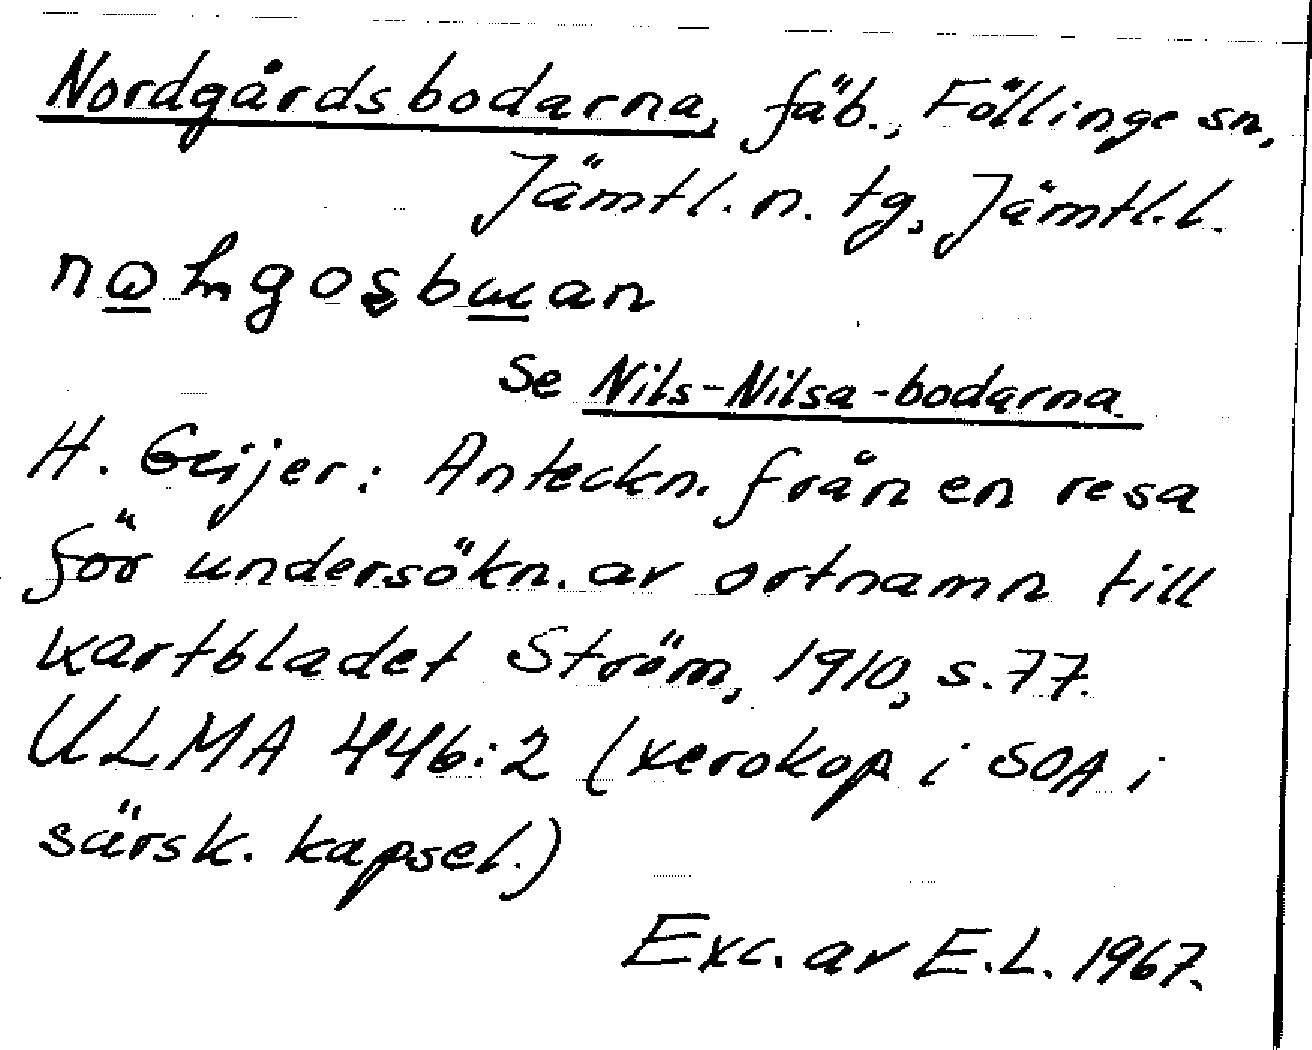 Nordgårdsbodarna, fäb., Föllinge sn,
Jämtl. n. tg, Jämtl. l.
Se Nils-Nilsa-bodarna
H. Geijer: Anteckn. från en resa
för undersökn. av ortnamn till
kartbladet Ström, 1910, s. 77.
ULMA 446:2 (xerokop i SOA i
särsk. kapsel.)
Exc. av E.L. 1967.